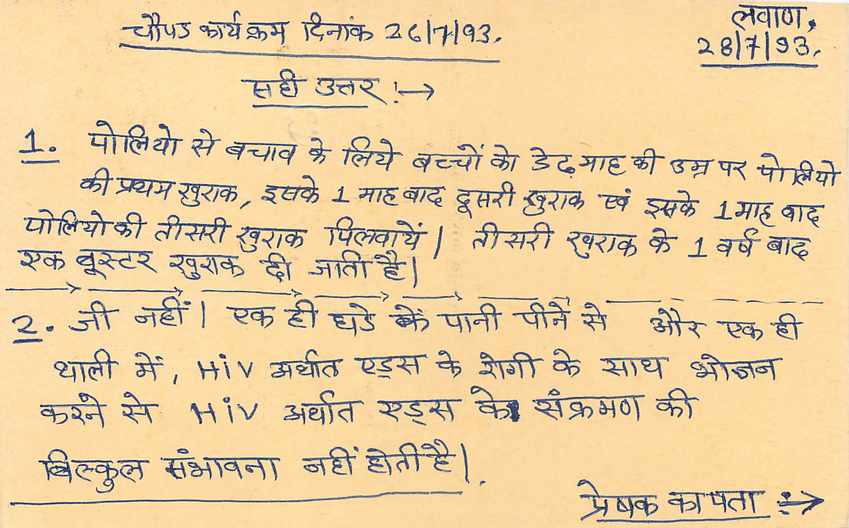 लवाण,
चौपड कार्यक्रम दिनांक 26/7/93.
28/7/93.
सही उत्तर :→
1. पोलियो से बचाव के लिये बच्चों को डेढ़ माह की उम्र पर पोलियो
की प्रथम खुराक, इसके 1 माह बाद दूसरी खुराक एवं इसके 1 माह बाद
पोलियो की तीसरी खुराक पिलवायें। तीसरी खुराक के 1 वर्ष बाद
एक बूस्टर खुराक दी जाती है।
2. जी नहीं। एक ही घडे के पानी पीने से और एक ही
थाली में, HiV अर्थात एड्स के रोगी के साथ भोजन
करने से HiV अर्थात एड्स के संक्रमण की
बिल्कुल संभावना नहीं होती है।
प्रेषक का पता :→